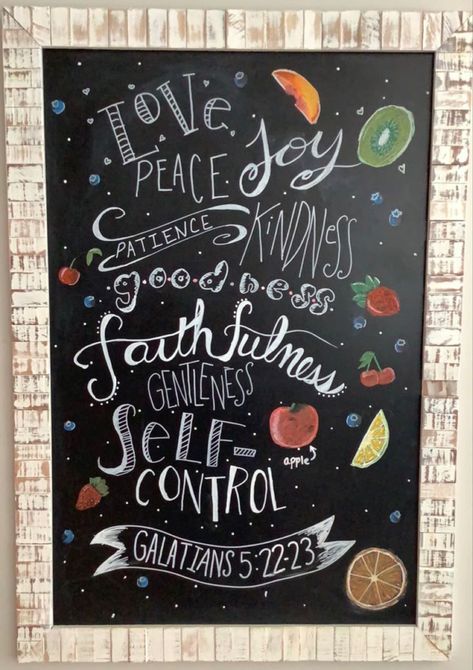 Love,
Joy
PEACE
PATIENCE
KiNDNesS
goodness
faithfulness
GENTLENESS
SeLF-
CONTROL
apple
GALATIANS 5:22-23